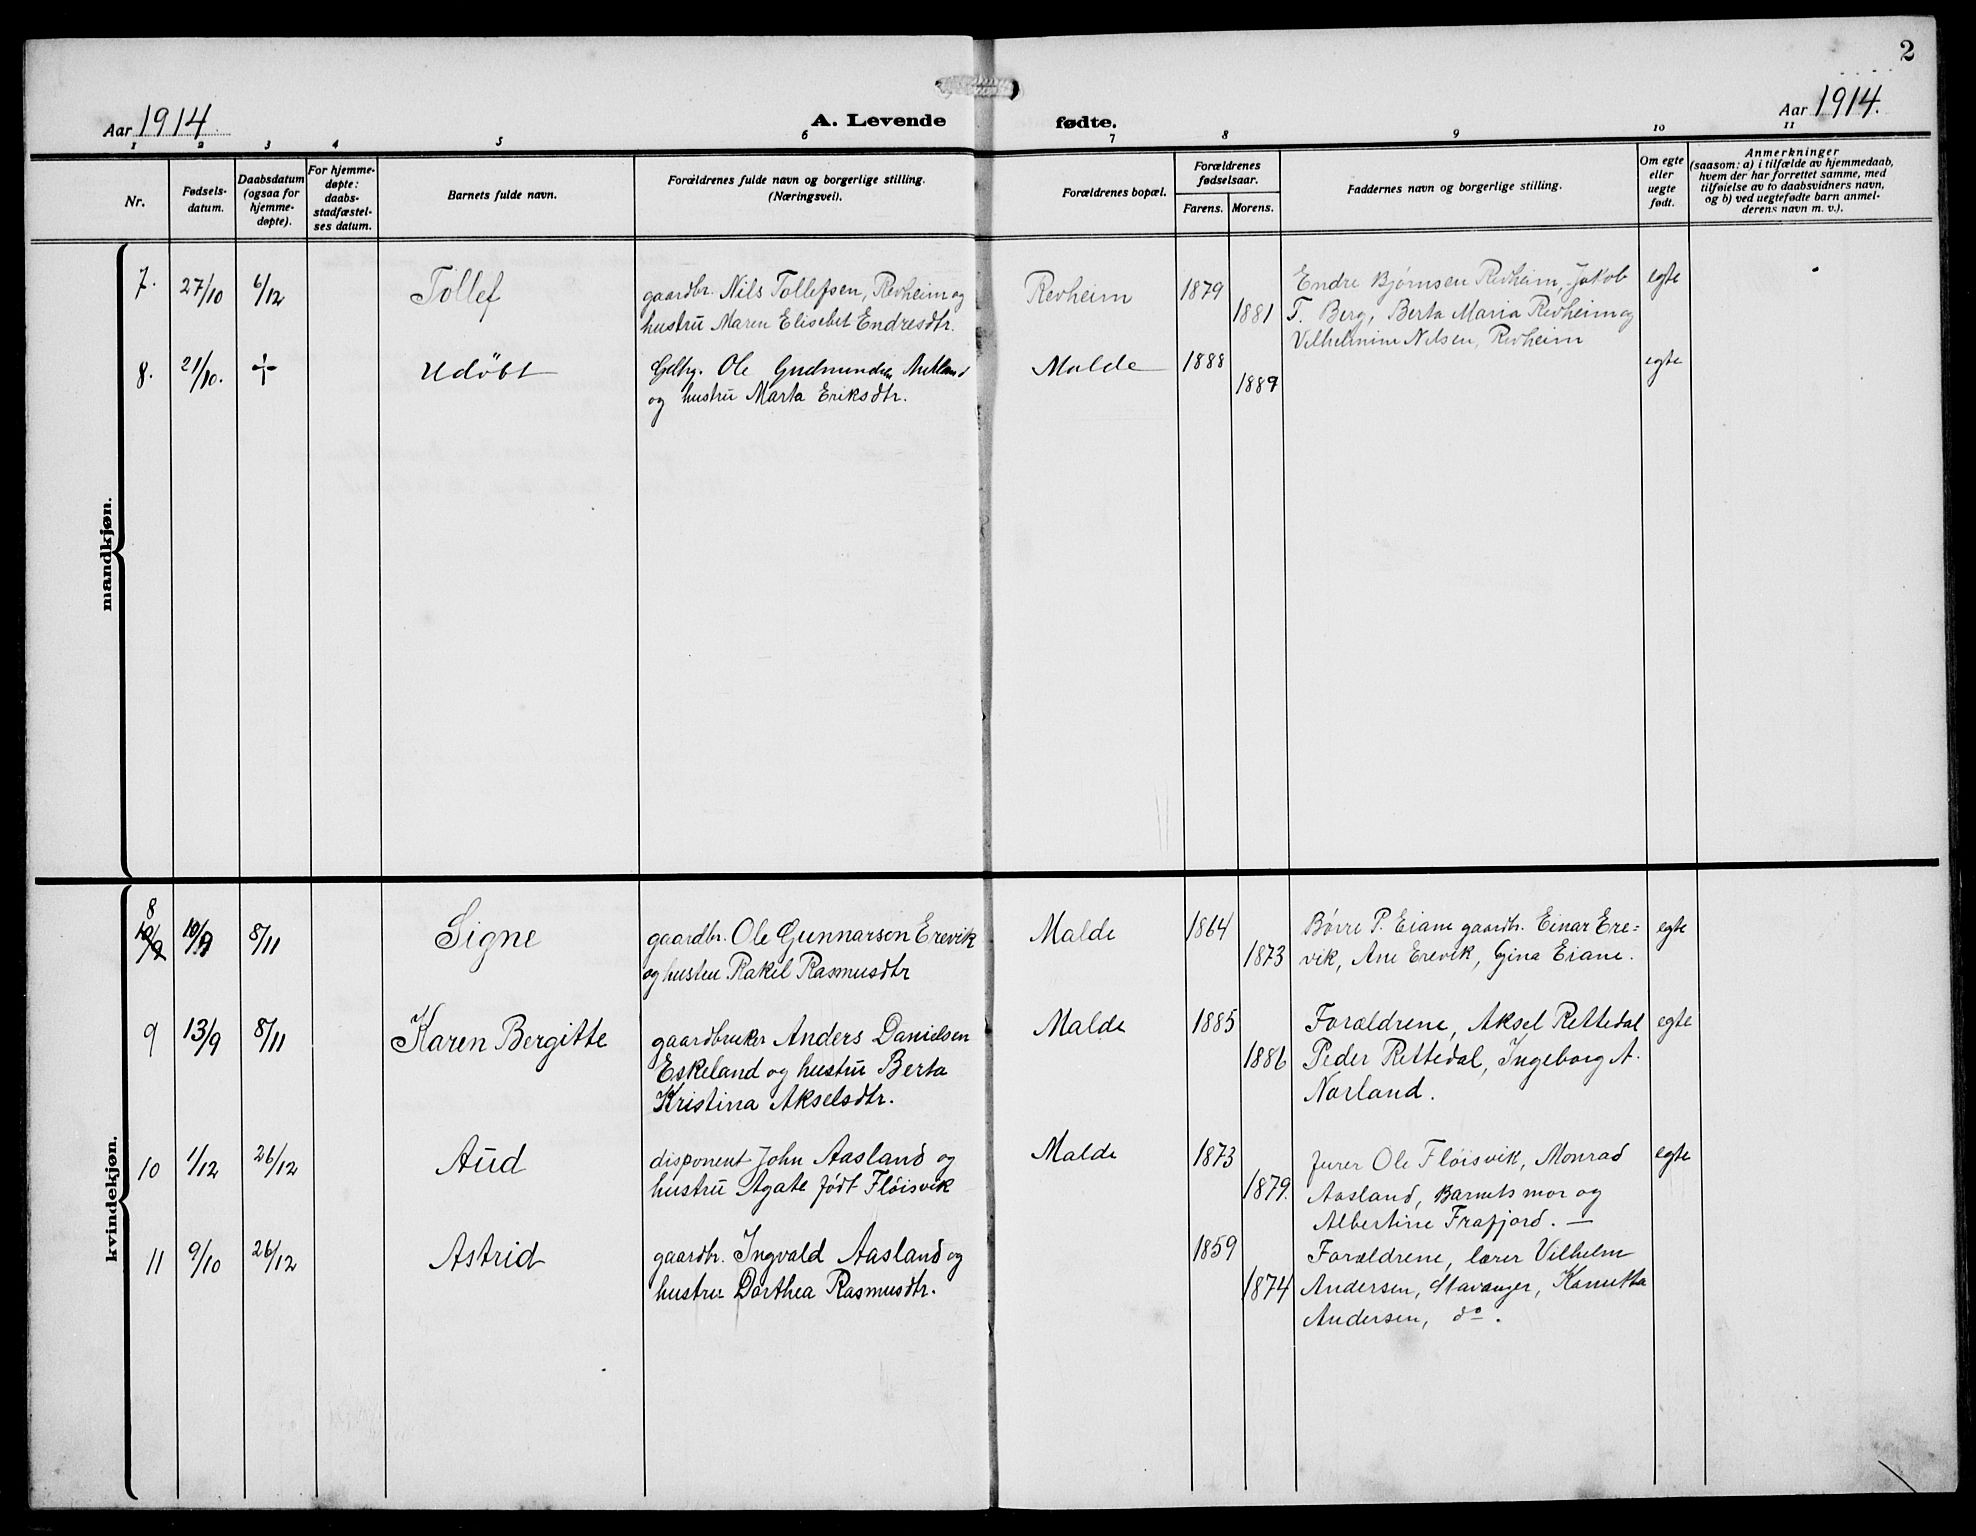 2
Aar 1914.
A. Levende
fødte.
Aar 1914.
1 2 3 4 5 6 7 8 9 10 11
Nr.
Fødsels-
datum.
Daabsdatum
(ogsaa for
hjemme-
døpte).
For hjemme-
døpte:
daabs-
stadfæstel-
ses datum.
Barnets fulde navn.
Forældrenes fulde navn og borgerlige stilling.
(Næringsvei).
Forældrenes bopæl.
Forældrenes
fødselsaar.
Farens. Morens.
Faddernes navn og borgerlige stilling.
Om egte
eller
uegte
født.
Anmerkninger
(saasom: a) i tilfælde av hjemmedaab,
hvem der har forrettet samme, med
tilføielse av to daabsvidners navn,
og b) ved uegtefødte barn anmel-
derens navn m. v.).
mandkjøn.
7. 27/10 6/12 Tollef
gaardbr. Nils Tollefsen, Revheim og
hustru Maren Elisebet Endresdtr.
Revheim 1879 1881
Endre Bjørnsen Revheim, Jakob
T. Berg, Berta Maria Revheim og
Vilhelmine Nilsen, Revheim
egte
8. 21/10. ✝ Udøbt
Ole Gudmundsen
og hustru Marta Eriksdtr.
Malde 1888 1889
egte
kvindekjøn.
8
10/9 10/9 8/11 Signe
gaardbr. Ole Gunnarson Erevik
og hustru Rakel Rasmusdtr
Malde 1864 1873
Børre P. Eiane gaardbr. Einar Ere=
vik, Ane Erevik, Gina Eiane.
egte
9 13/9 8/11 Karen Bergitte
gaardbruker Anders Danielsen
Eskeland og hustru Berta
Kristina Akselsdtr.
Malde 1885 1886
Forældrene, Aksel Rettedal
Peder Rettedal, Ingeborg A.
Norland.
egte
10 1/12 26/12 Aud
disponent John Aasland og
hustru Agate født Fløisvik
Malde 1873 1879.
Ole Fløisvik, Monrad
Aasland, Barnets mor og
Albertine Frafjord. —
egte
11 9/10 26/12 Astrid
gaardbr. Ingvald Aasland og
hustru Dorthea Rasmusdtr.
1859 1874
Forældrene, lærer Vilhelm
Andersen, Stavanger, Kanutta
Andersen, do.